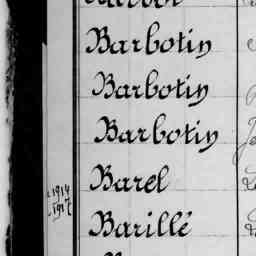 Barbotin
Barbotin
Barbotin
Barel
1914
1917
Barillé